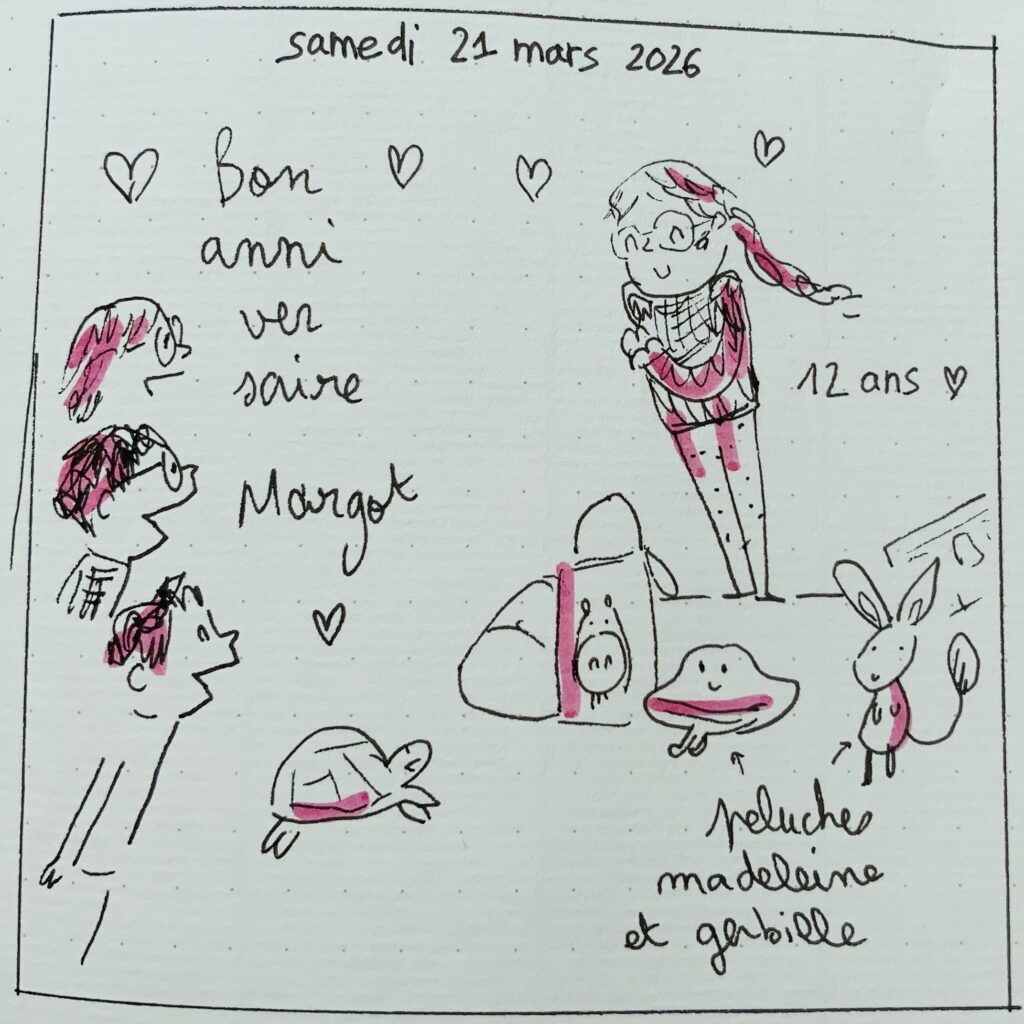 samedi 21 mars 2026
Bon
anni
ver
saire
Margot
12 ans
peluches
madeleine
et gerbille